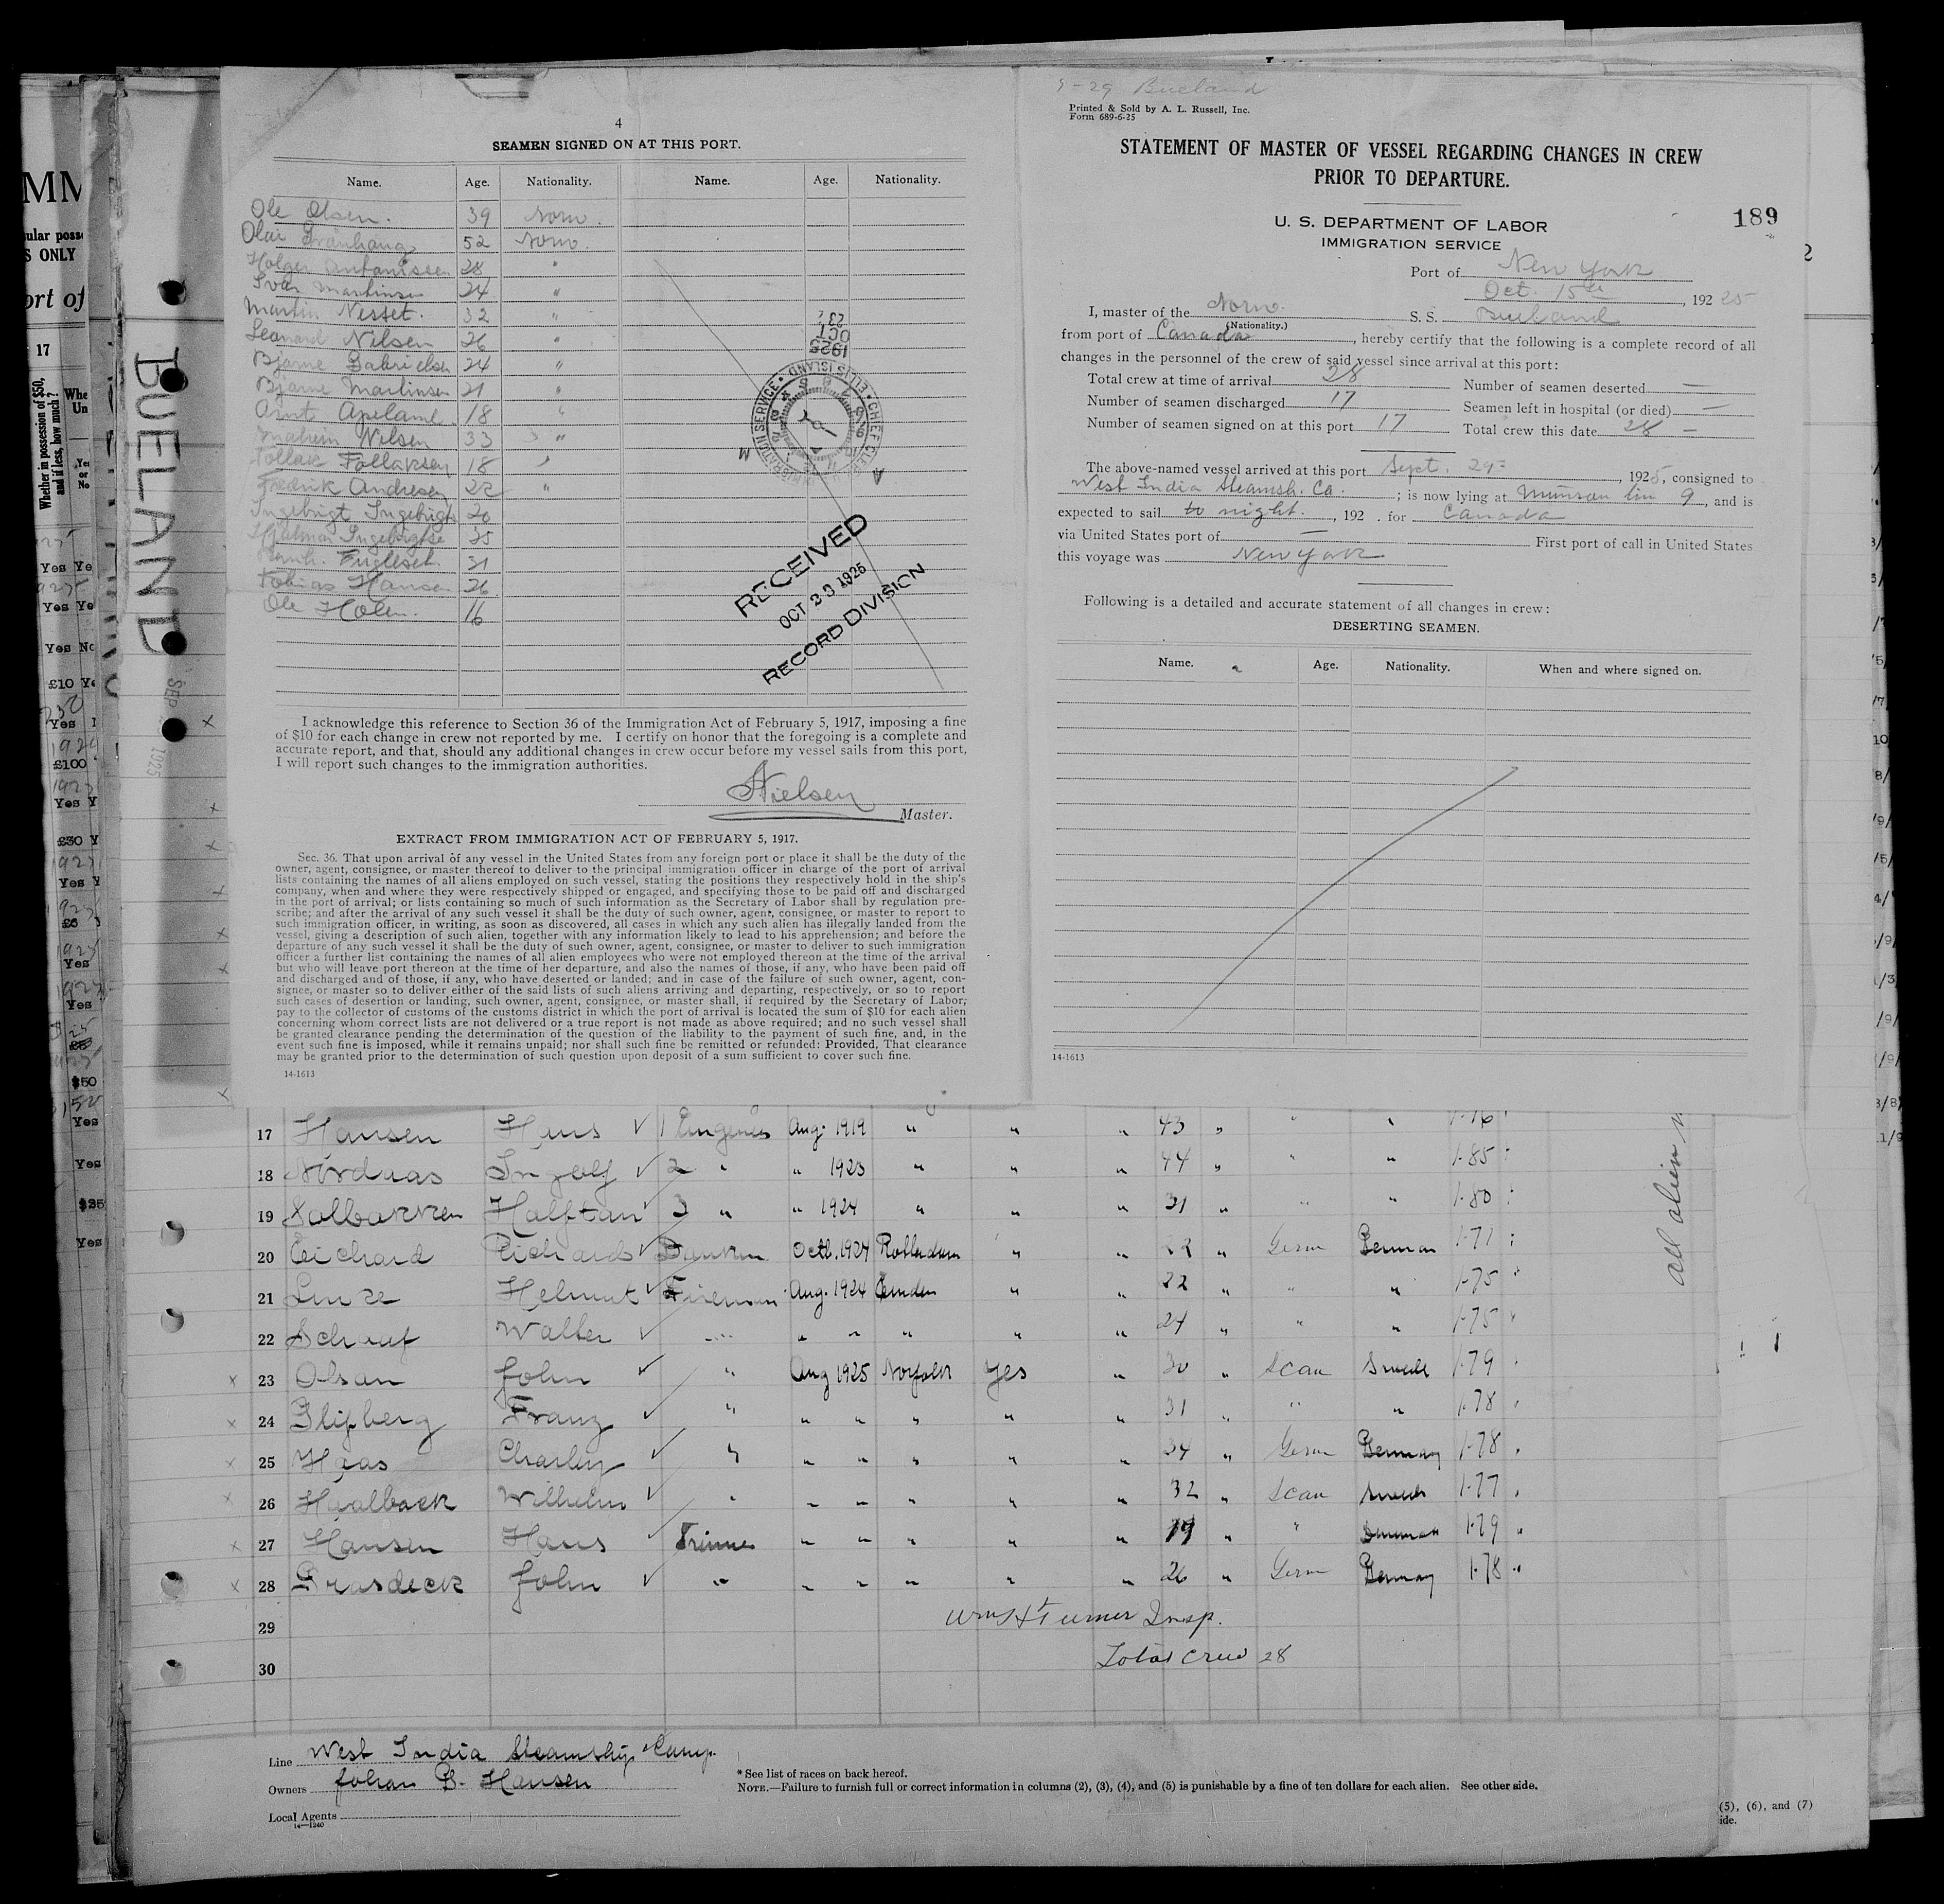 4
SEAMEN SIGNED ON AT THIS PORT.
Name. Age. Nationality. Name. Age. Nationality.
Ole Olsen. 39 Norw.
Olai 52 Norw.
Holger 28 "
Ivar Martinsen 24 "
Martin Nesset. 32 "
Leonard Nilsen 26 "
Bjarne Gabrielsen 24 "
Bjarne Martinsen 21 "
Arnt Apeland. 18 "
Nilsen 33 "
Tollak Follaksen 18 "
Fredrik Andresen 22 "
Ingebrigt 20
Hjalmar 25
31
Tobias Hansen 26
Ole Holm. 16
1925
OCT
23
IMMIGRATION SERVICE • ELLIS ISLAND • CHIEF CLERK
RECEIVED
OCT 23 1925
RECORD DIVISION
I acknowledge this reference to Section 36 of the Immigration Act of February 5, 1917, imposing a fine
of $10 for each change in crew not reported by me. I certify on honor that the foregoing is a complete and
accurate report, and that, should any additional changes in crew occur before my vessel sails from this port,
I will report such changes to the immigration authorities.
Nielsen
Master.
EXTRACT FROM IMMIGRATION ACT OF FEBRUARY 5, 1917.
Sec. 36. That upon arrival of any vessel in the United States from any foreign port or place it shall be the duty of the
owner, agent, consignee, or master thereof to deliver to the principal immigration officer in charge of the port of arrival
lists containing the names of all aliens employed on such vessel, stating the positions they respectively hold in the ship's
company, when and where they were respectively shipped or engaged, and specifying those to be paid off and discharged
in the port of arrival; or lists containing so much of such information as the Secretary of Labor shall by regulation pre-
scribe; and after the arrival of any such vessel it shall be the duty of such owner, agent, consignee, or master to report to
such immigration officer, in writing, as soon as discovered, all cases in which any such alien has illegally landed from the
vessel, giving a description of such alien, together with any information likely to lead to his apprehension; and before the
departure of any such vessel it shall be the duty of such owner, agent, consignee, or master to deliver to such immigration
officer a further list containing the names of all alien employees who were not employed thereon at the time of the arrival
but who will leave port thereon at the time of her departure, and also the names of those, if any, who have been paid off
and discharged and of those, if any, who have deserted or landed; and in case of the failure of such owner, agent, con-
signee, or master so to deliver either of the said lists of such aliens arriving and departing, respectively, or so to report
such cases of desertion or landing, such owner, agent, consignee, or master shall, if required by the Secretary of Labor,
pay to the collector of customs of the customs district in which the port of arrival is located the sum of $10 for each alien
concerning whom correct lists are not delivered or a true report is not made as above required; and no such vessel shall
be granted clearance pending the determination of the question of the liability to the payment of such fine, and, in the
event such fine is imposed, while it remains unpaid; nor shall such fine be remitted or refunded: Provided, That clearance
may be granted prior to the determination of such question upon deposit of a sum sufficient to cover such fine.
14-1613
9-29 Bueland
Printed & Sold by A. L. Russell, Inc.
Form 689-6-25
STATEMENT OF MASTER OF VESSEL REGARDING CHANGES IN CREW
PRIOR TO DEPARTURE.
U. S. DEPARTMENT OF LABOR
IMMIGRATION SERVICE
189
Port of New York
Oct. 15th, 1925
I, master of the Norw. S. S. Bueland
(Nationality.)
from port of Canada, hereby certify that the following is a complete record of all
changes in the personnel of the crew of said vessel since arrival at this port:
Total crew at time of arrival 28 Number of seamen deserted —
Number of seamen discharged 17 Seamen left in hospital (or died) —
Number of seamen signed on at this port 17 Total crew this date 28 —
The above-named vessel arrived at this port Sept. 29, 1925, consigned to
West India Steamsh. Co. ; is now lying at Munson lin 9, and is
expected to sail to night., 192 . for Canada
via United States port of — First port of call in United States
this voyage was New York
Following is a detailed and accurate statement of all changes in crew:
DESERTING SEAMEN.
Name. Age. Nationality. When and where signed on.
14-1613
BUELAND
SEP 1925
17 Hansen Hans ✓ 1 Aug. 1919 " " " 43 " " " 1-76
18 Nordaas Ingolf ✓ 2 " " 1923 " " " 44 " " " 1-85
19 Solbakken Halftan ✓ 3 " " 1924 " " " 31 " " " 1-80
20 Richard ✓ Octb. 1924 Rotterdam " " 22 " Germ German 1-71
21 Helmut ✓ Fireman Aug. 1924 Emden " " 22 " " " 1-75
22 Walter ✓ " " " " " " 24 " " " 1-75
x 23 Olsan John ✓ " Aug 1925 Norfolk Yes " 30 " Scan Swede 1-79
x 24 Franz ✓ " " " " " " 31 " " " 1-78
x 25 Haas Charley ✓ " " " " " " 34 " Germ Germany 1-78
x 26 Haalback Wilhelm ✓ " " " " " " 32 " Scan 1-77
x 27 Hansen Hans ✓ Trimmer " " " " " 19 " " 1-79
x 28 Grasdeck John ✓ " " " " " " 26 " Germ Germany 1-78
29 Wm H Turner Insp.
30 Total Crew 28
all alien
Line West India Steamship Comp.
Owners Johan G. Hansen
Local Agents
14—1240
* See list of races on back hereof.
NOTE.—Failure to furnish full or correct information in columns (2), (3), (4), and (5) is punishable by a fine of ten dollars for each alien. See other side.
(5), (6), and (7)
ide.
MM
ular posse
S ONLY
ort of
17
Whether in possession of $50, and if less, how much?
Yes Ye
Yes Ye
Yes No
£10 Ye
Yes
£100
Yes Y
£30 Y
Yes Y
£6
Yes
Yes
$50
Yes
Yes
$25
Yes